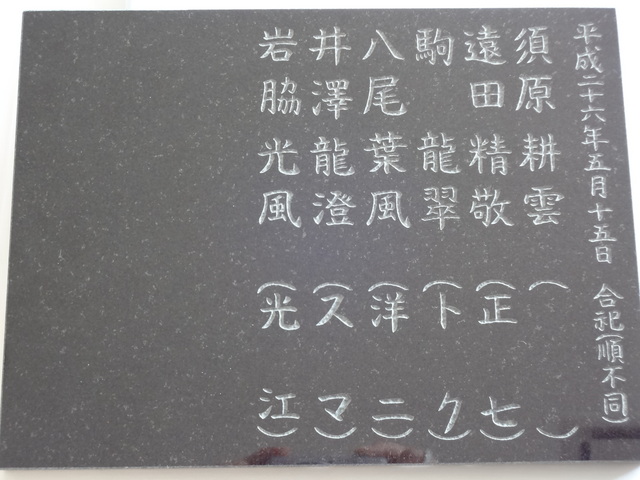 平成二十六年五月十五日 合祀(順不同)
須原耕雲 ( )
遠田精敬 (正七)
駒 龍翠 (トク)
八尾葉風 (洋二)
井澤龍澄 (スマ)
岩脇光風 (光江)